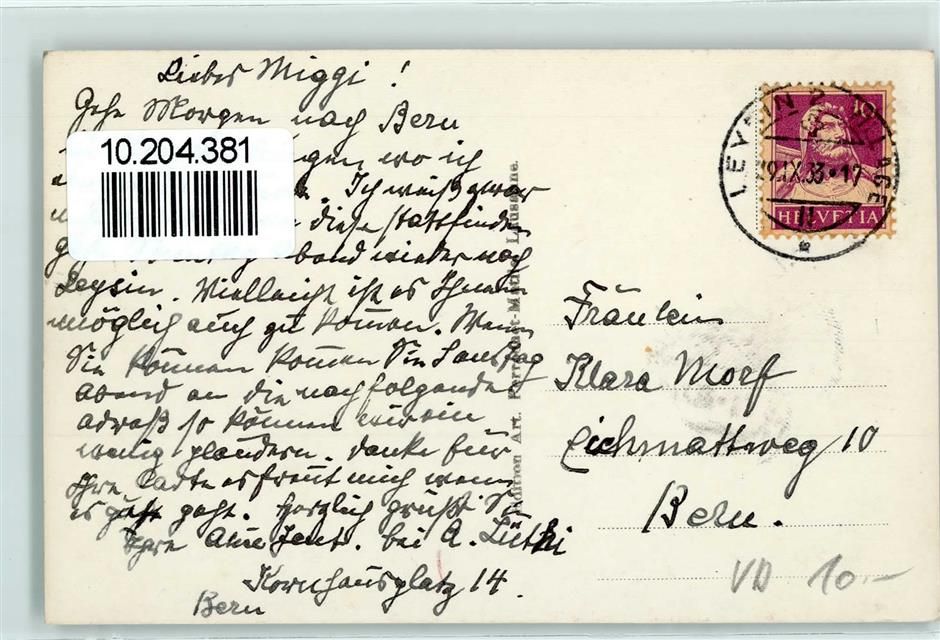 Liebes Miggi!
Gehe Morgen nach Bern
gen wo ich
. Ich weiß zwar
diese stattfinden
wieder nach
Leysin. Vielleicht ist es Ihnen
möglich auch zu kommen. Wenn
Sie können kommen Sie Samstag
abend an die nachfolgende
adreß so können wir ein
wenig plaudern. Danke für
Ihre Carte es freut mich wenn
es geht. Herzlich grüßt Sie
Ihre bei A. Lüthi
Kornhausplatz 14.
Bern
10.204.381
Edition Art. Perrochet-Matile, Lausanne.
LEYSIN VILLAGE
19.IX.33.-17
10
HELVETIA
Fräulein
Klara Morf
Eichmattweg 10
Bern.
VD 10.-